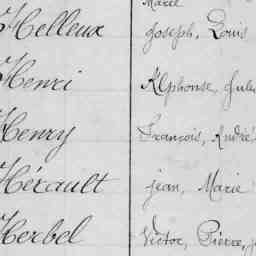 Marie
Helleux Joseph, Louis
Henri Alphonse, Jules
Henry François, André
Hérault Jean, Marie
Herbel Victor, Pierre, J